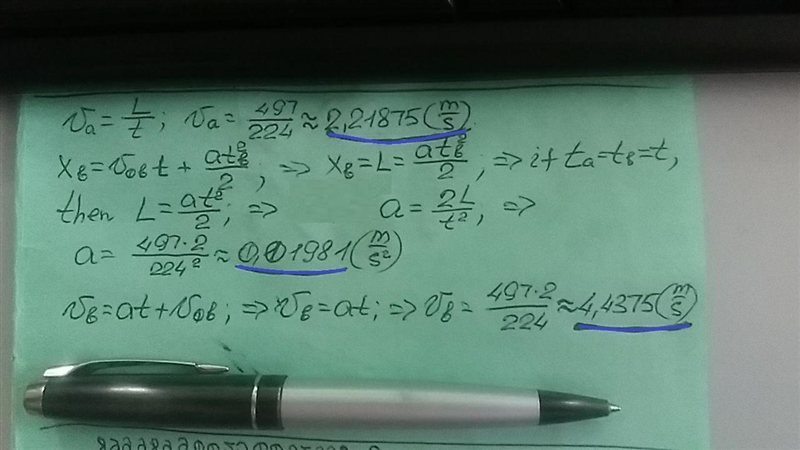 v_a = L/t; v_a = 497/224 ≈ 2,21875 (m/s).
x_в = v_0в t + at_в²/2; => x_в = L = at_в²/2; => if t_a = t_в = t,
then L = at²/2; => a = 2L/t²; =>
a = 497·2/224² ≈ 0,01981 (m/s²)
v_в = at + v_0в; => v_в = at; => v_в = 497·2/224 ≈ 4,4375 (m/s)